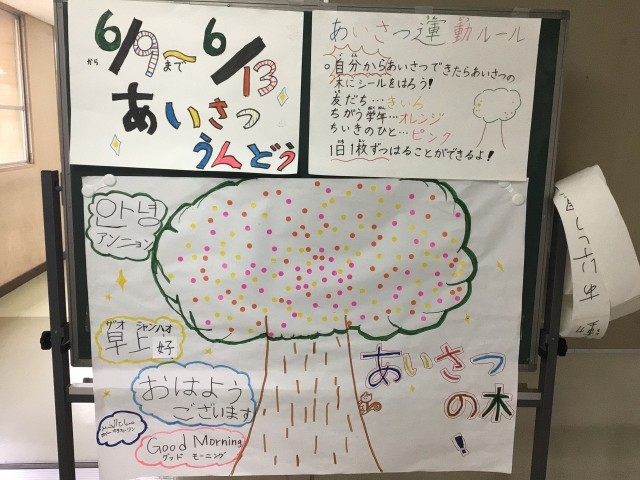 6/9〜6/13
から
まで
あいさつ
うんどう
あいさつ運動ルール
。自分からあいさつできたらあいさつの
木にシールをはろう!
友だち…きいろ
ちがう学年…オレンジ
ちいきのひと…ピンク
1日1枚ずつはることができるよ!
안녕
アンニョン
ザオ シャンハオ
早上好
おはよう
ございます
Good Morning
グッド モーニング
あいさつ
の木
!